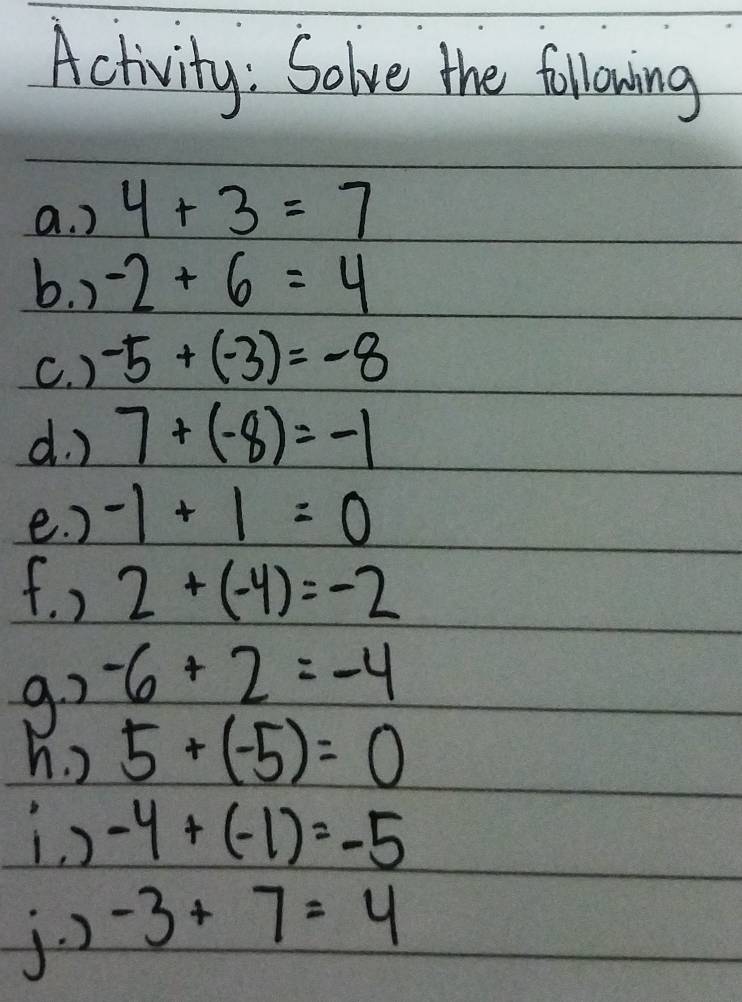 Activity: Solve the following
a.) 4 + 3 = 7
b.) -2 + 6 = 4
c.) -5 + (-3) = -8
d.) 7 + (-8) = -1
e.) -1 + 1 = 0
f.) 2 + (-4) = -2
g.) -6 + 2 = -4
h.) 5 + (-5) = 0
i.) -4 + (-1) = -5
j.) -3 + 7 = 4